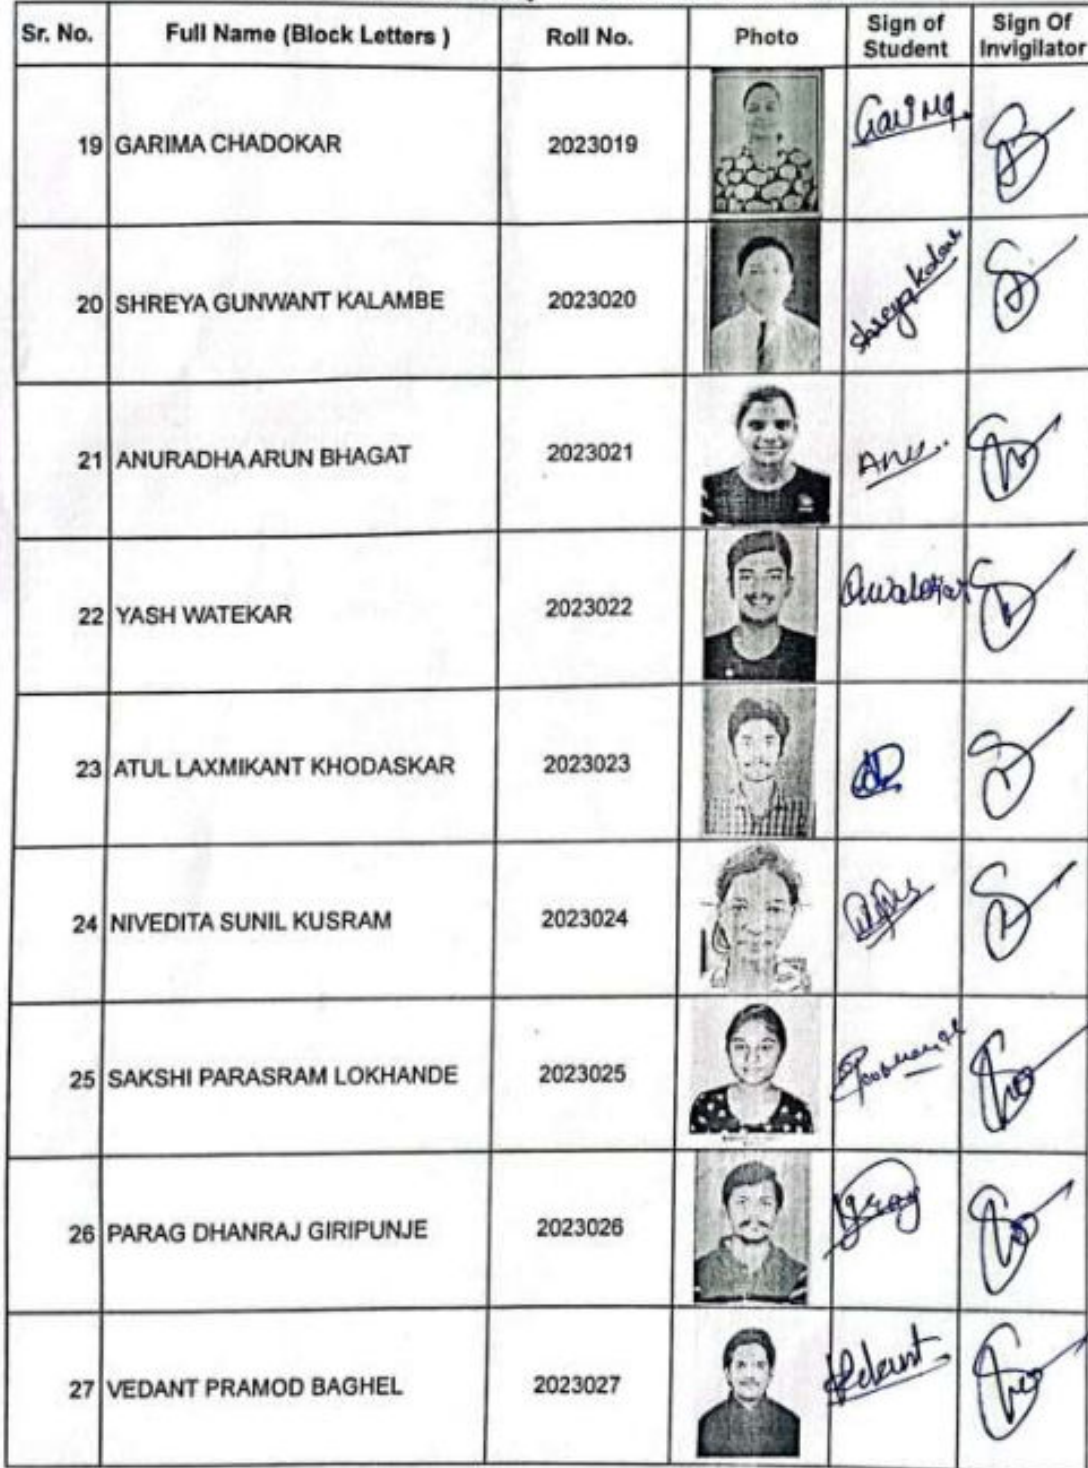 Sr. No. Full Name (Block Letters ) Roll No. Photo Sign of Student Sign Of Invigilator
19 GARIMA CHADOKAR 2023019 Garima
20 SHREYA GUNWANT KALAMBE 2023020
21 ANURADHA ARUN BHAGAT 2023021 Anu..
22 YASH WATEKAR 2023022
23 ATUL LAXMIKANT KHODASKAR 2023023
24 NIVEDITA SUNIL KUSRAM 2023024
25 SAKSHI PARASRAM LOKHANDE 2023025
26 PARAG DHANRAJ GIRIPUNJE 2023026
27 VEDANT PRAMOD BAGHEL 2023027